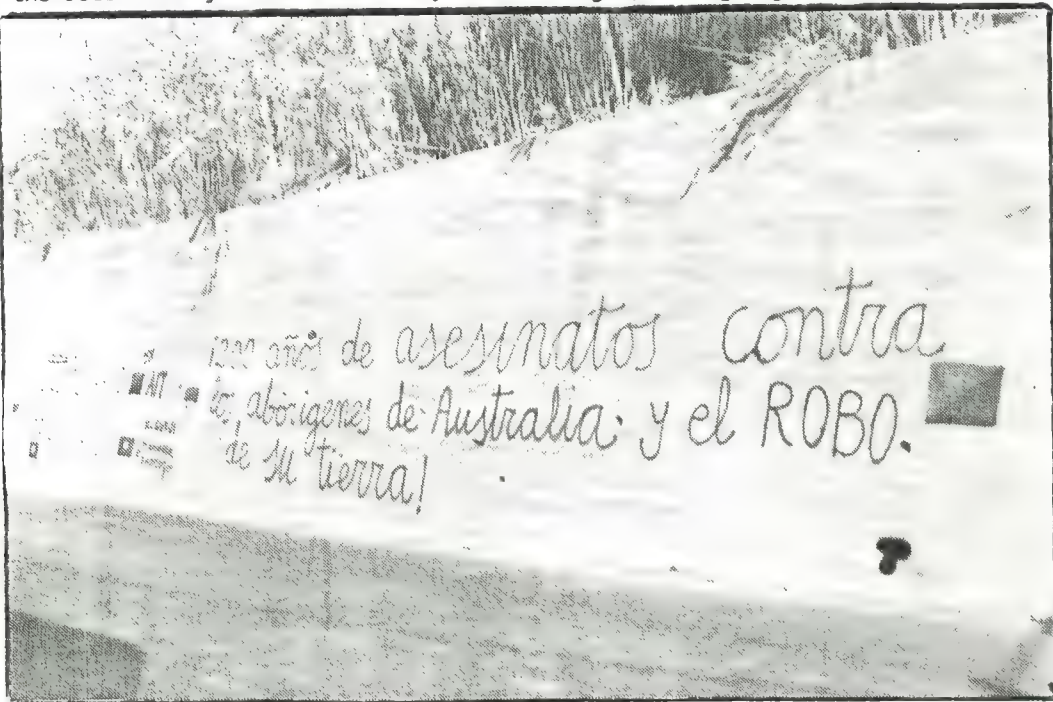 ¡200 años de asesinatos contra
los aborigenes de Australia y el ROBO.
de su tierra!